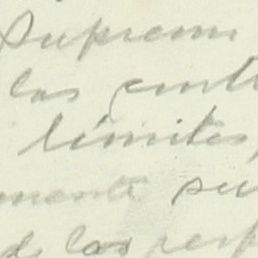 Suprem
las cont
límites,
mente su
d las resp